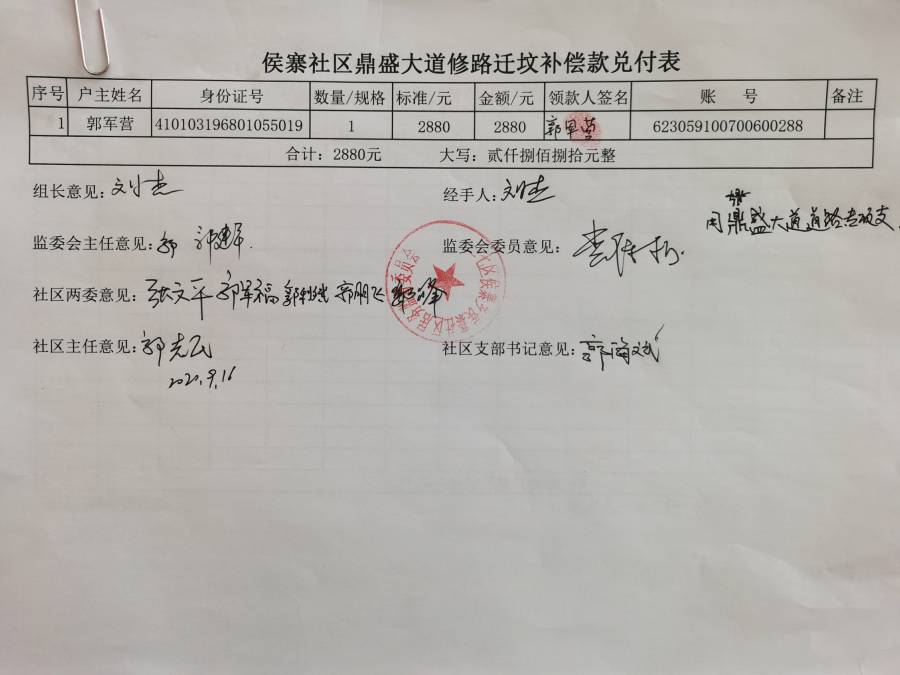 侯寨社区鼎盛大道修路迁坟补偿款兑付表
序号 户主姓名 身份证号 数量/规格 标准/元 金额/元 领款人签名 账 号 备注
1 郭军营 410103196801055019 1 2880 2880 郭军营 623059100700600288
合计：2880元 大写：贰仟捌佰捌拾元整
组长意见： 经手人：
用鼎盛大道道路专项支
监委会主任意见：郭 监委会委员意见：
社区两委意见：张文平 郭军福 郭朋飞
社区主任意见：郭先民 社区支部书记意见：郭
2020.9.16